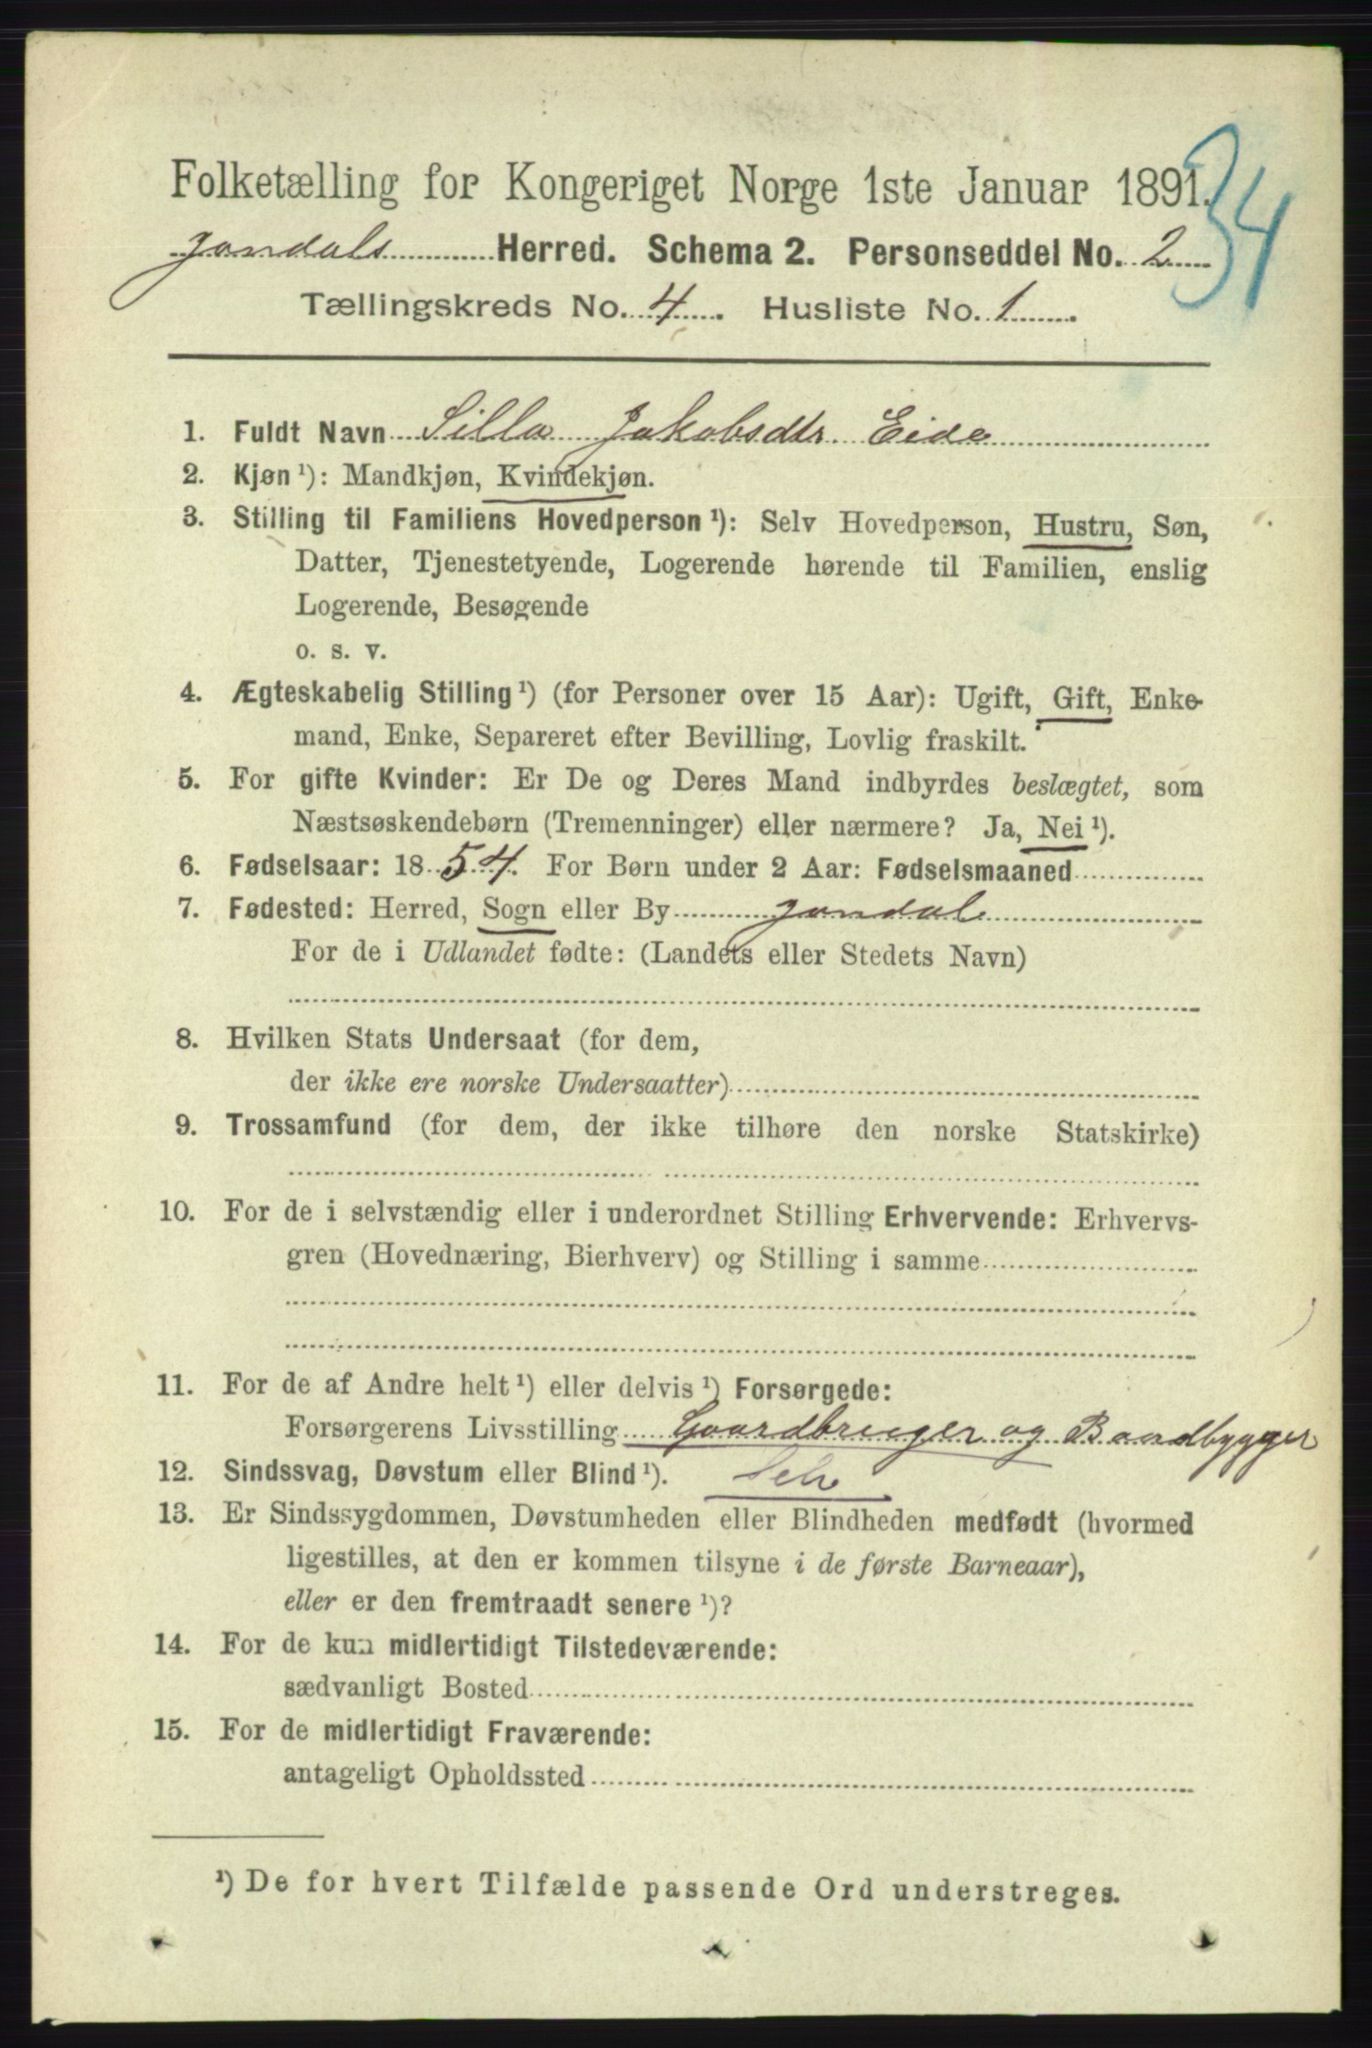 34
Folketælling for Kongeriget Norge 1ste Januar 1891.
Jondals Herred. Schema 2. Personseddel No. 2
Tællingskreds No. 4. Husliste No. 1.
1. Fuldt Navn Silla Jakobsdtr. Eide
2. Kjøn ¹): Mandkjøn, Kvindekjøn.
3. Stilling til Familiens Hovedperson ¹): Selv Hovedperson, Hustru, Søn,
Datter, Tjenestetyende, Logerende hørende til Familien, enslig
Logerende, Besøgende
o. s. v.
4. Ægteskabelig Stilling ¹) (for Personer over 15 Aar): Ugift, Gift, Enke-
mand, Enke, Separeret efter Bevilling, Lovlig fraskilt.
5. For gifte Kvinder: Er De og Deres Mand indbyrdes beslægtet, som
Næstsøskendebørn (Tremenninger) eller nærmere? Ja, Nei ¹).
6. Fødselsaar: 1854. For Børn under 2 Aar: Fødselsmaaned
7. Fødested: Herred, Sogn eller By Jondal
For de i Udlandet fødte: (Landets eller Stedets Navn)
8. Hvilken Stats Undersaat (for dem,
der ikke ere norske Undersaatter)
9. Trossamfund (for dem, der ikke tilhøre den norske Statskirke)
10. For de i selvstændig eller i underordnet Stilling Erhvervende: Erhvervs-
gren (Hovednæring, Bierhverv) og Stilling i samme
11. For de af Andre helt ¹) eller delvis ¹) Forsørgede:
Forsørgerens Livsstilling Gaardbruger og Baadbygger
12. Sindssvag, Døvstum eller Blind ¹). Selv
13. Er Sindssygdommen, Døvstumheden eller Blindheden medfødt (hvormed
ligestilles, at den er kommen tilsyne i de første Barneaar),
eller er den fremtraadt senere ¹)?
14. For de kun midlertidigt Tilstedeværende:
sædvanligt Bosted
15. For de midlertidigt Fraværende:
antageligt Opholdssted
¹) De for hvert Tilfælde passende Ord understreges.